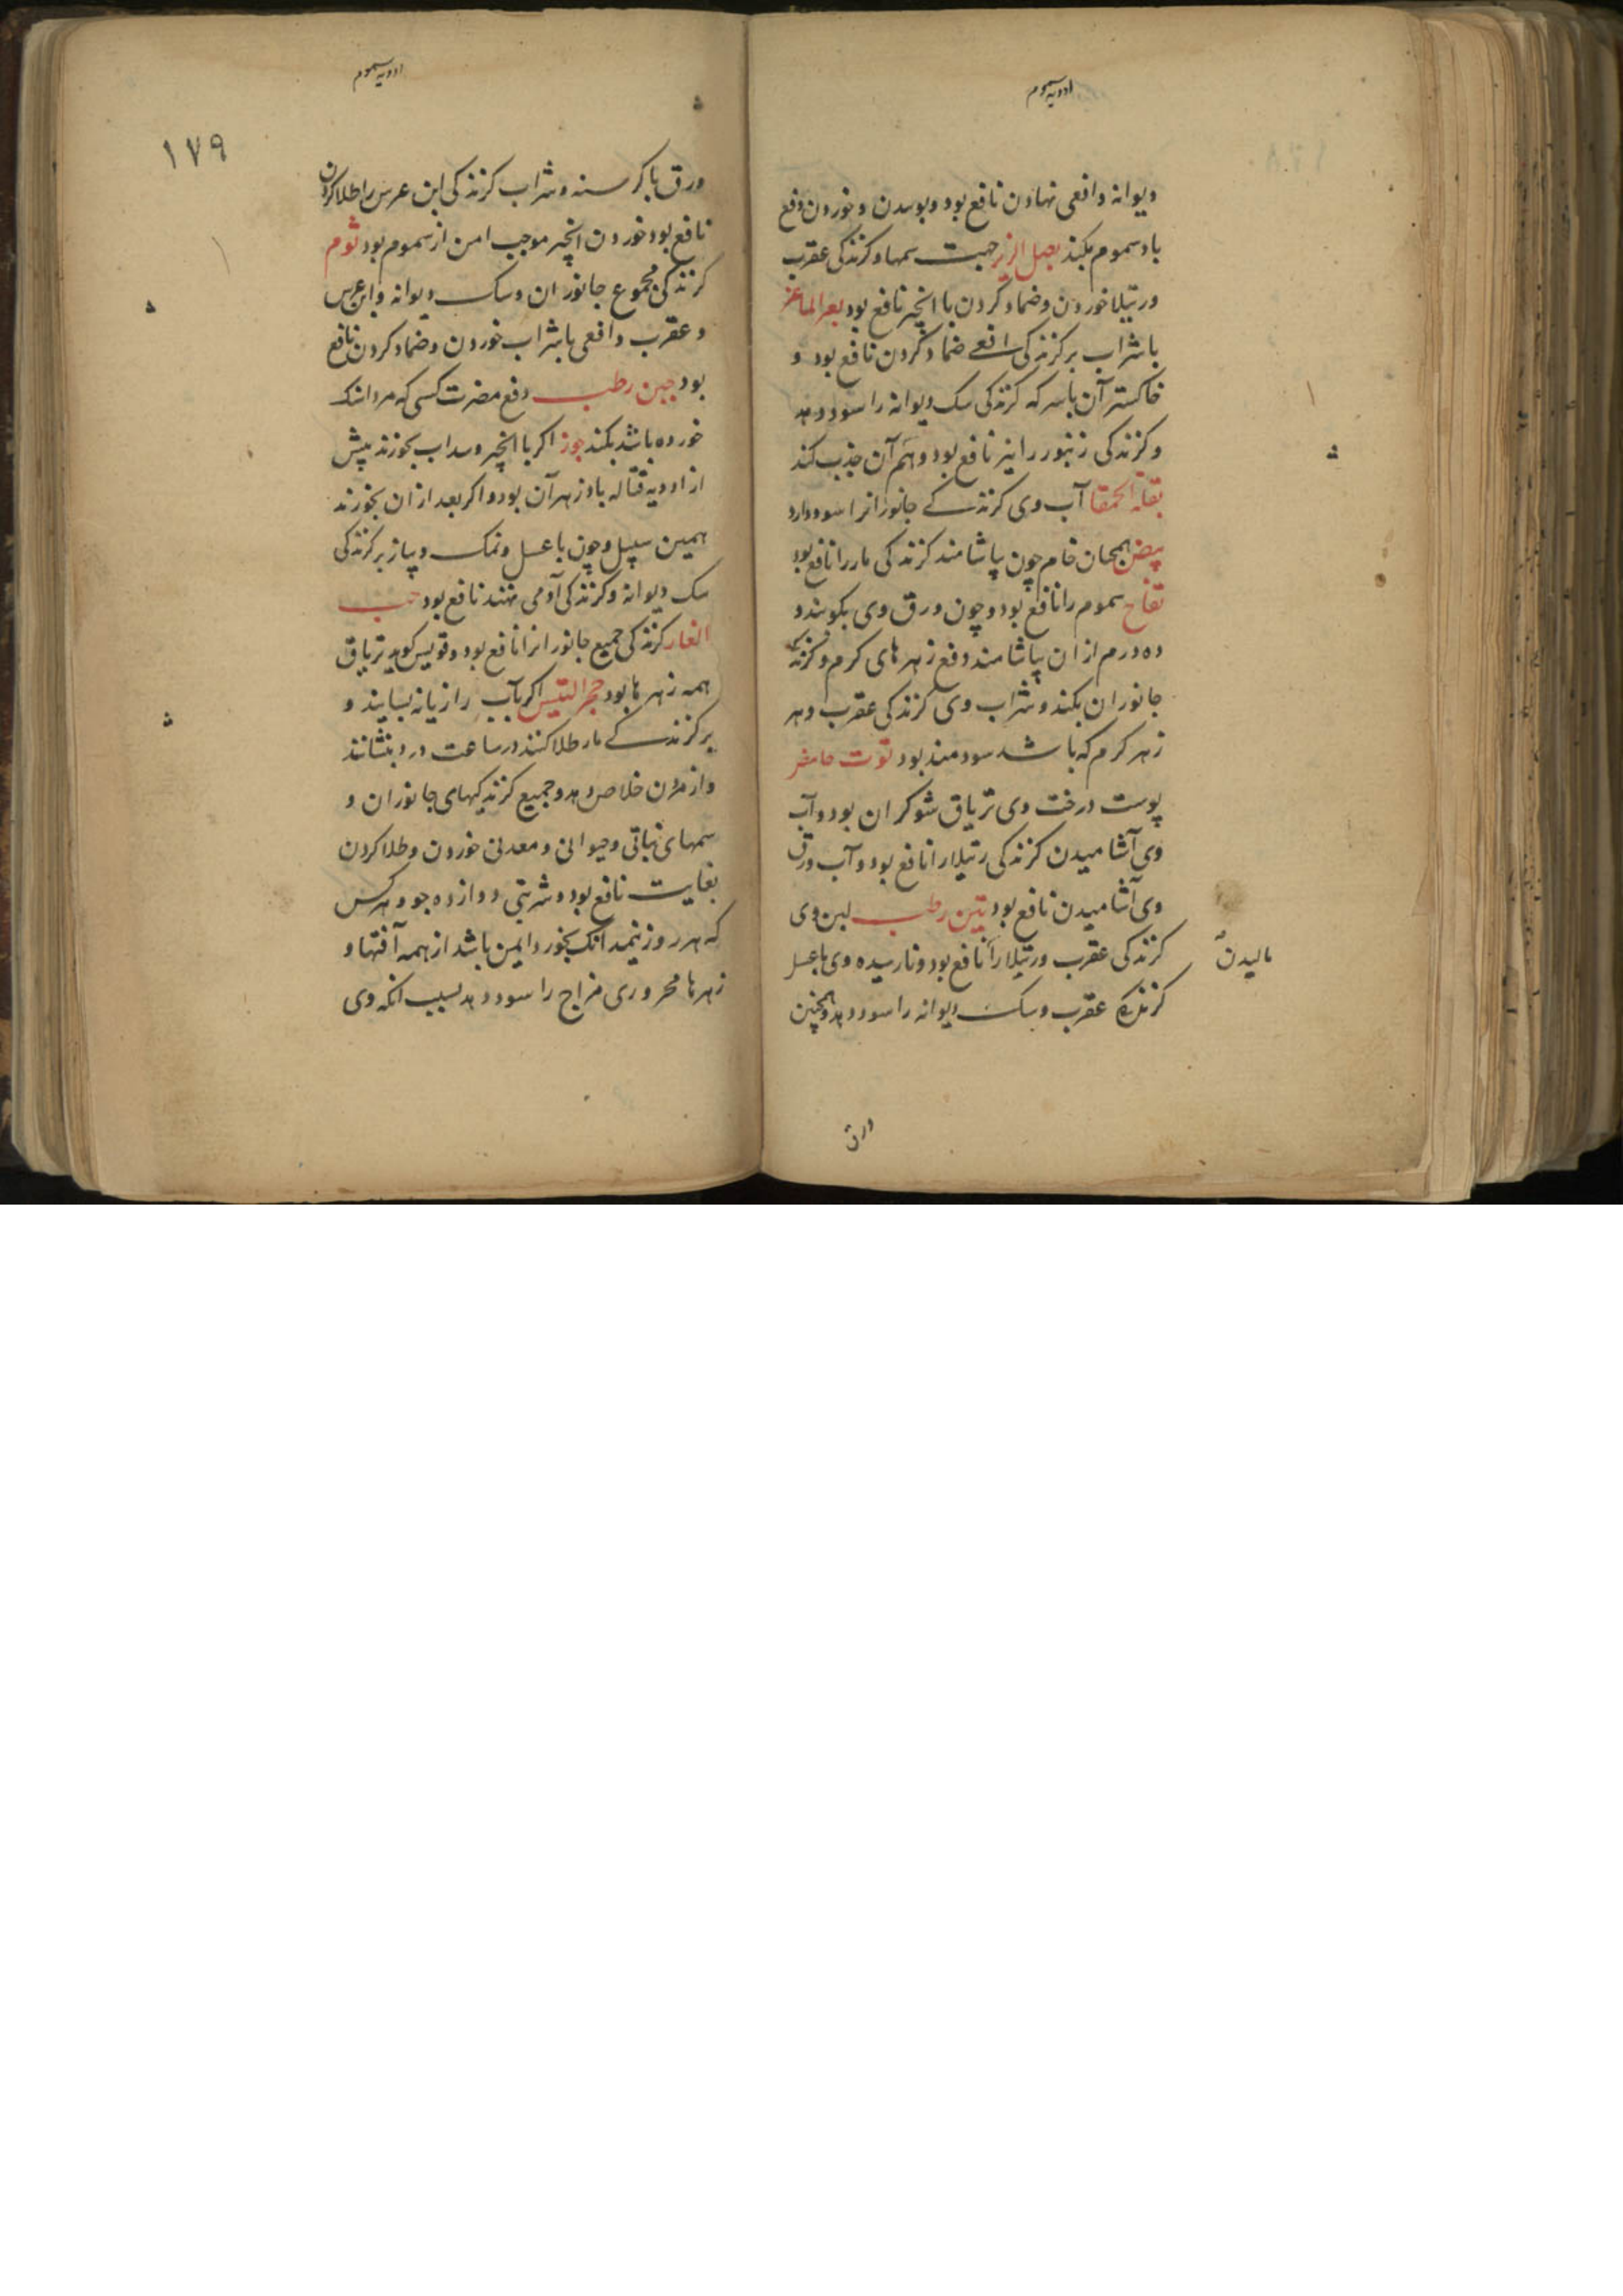 ادویه سموم
دیوانه و افعی نهادن نافع بود و بوییدن و خوردن دفع
باد سموم بکند بصل الزیز جهت سمها و کزندکی عقرب
و رتیلا خوردن و ضماد کردن با انجیر نافع بود بعر الماعز
با شراب بر کزندکی افعی ضماد کردن نافع بود و
خاکستر آن با سرکه کزندکی سک دیوانه را سود دهد
و کزندکی زنبور را نیز نافع بود و هم آن جذب کند
بقلة الحمقا آب وی کزندکی جانورانرا سود دارد
بیض همچنان خام چون بیاشامند کزندکی مار را نافع بود
تفاح سموم را نافع بود و چون ورق وی بکوبند و
ده درم از ان بیاشامند دفع زهرهای کرم و کزندکی
جانوران بکند و شراب وی کزندکی عقرب و هر
زهر کرم که باشد سودمند بود توت حامض
پوست درخت وی تریاق شوکران بود و آب
وی آشامیدن کزندکی رتیلا را نافع بود و آب ورق
وی آشامیدن نافع بود تین رطب لبن وی
کزندکی عقرب و رتیلا را نافع بود و نارسیده وی با عسل
مالیدن
کزندکی عقرب و سک دیوانه را سود دهد و همچنین
ورق
ادویه سموم
۱۷۹
ورق با کرسنه و شراب کزندکی ابن عرس را طلا کردن
نافع بود خوردن انجیر موجب امن از سموم بود ثوم
کزندکی مجموع جانوران و سک دیوانه و ابن عرس
و عقرب و افعی با شراب خوردن و ضماد کردن نافع
بود جبن رطب دفع مضرت کسی که مرداسنک
خورده باشد بکند جوز اکر با انجیر و سداب بخورند پیش
از ادویه قتاله بادزهر آن بود و اکر بعد از ان بخورند
همین سبیل و چون با عسل و نمک و پیاز بر کزندکی
سک دیوانه و کزندکی آدمی نهند نافع بود حب
الغار کزندکی جمیع جانورانرا نافع بود و قویس کوید تریاق
همه زهرها بود حجر التیس اکر بآب رازیانه بسایند و
بر کزندکی مار طلا کنند در ساعت درد بنشانند
و از مردن خلاص دهد و جمیع کزندکیهای جانوران و
سمهای نباتی و حیوانی و معدنی خوردن و طلا کردن
بغایت نافع بود و شربتی دوازده جو و هر کس
که هر روز نیمدانک بخورد ایمن باشد از همه آفتها و
زهرها محروری مزاج را سود دهد بسبب انکه وی